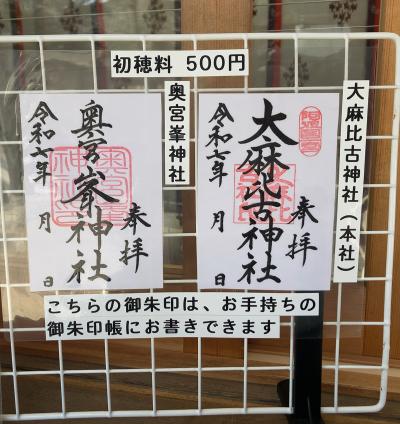 初穂料 500円
大麻比古神社(本社)
奉拝
大麻比古神社
令和七年 月 日
奥宮峯神社
奉拝
奥宮峯神社
令和七年 月 日
こちらの御朱印は、お手持ちの
御朱印帳にお書きできます